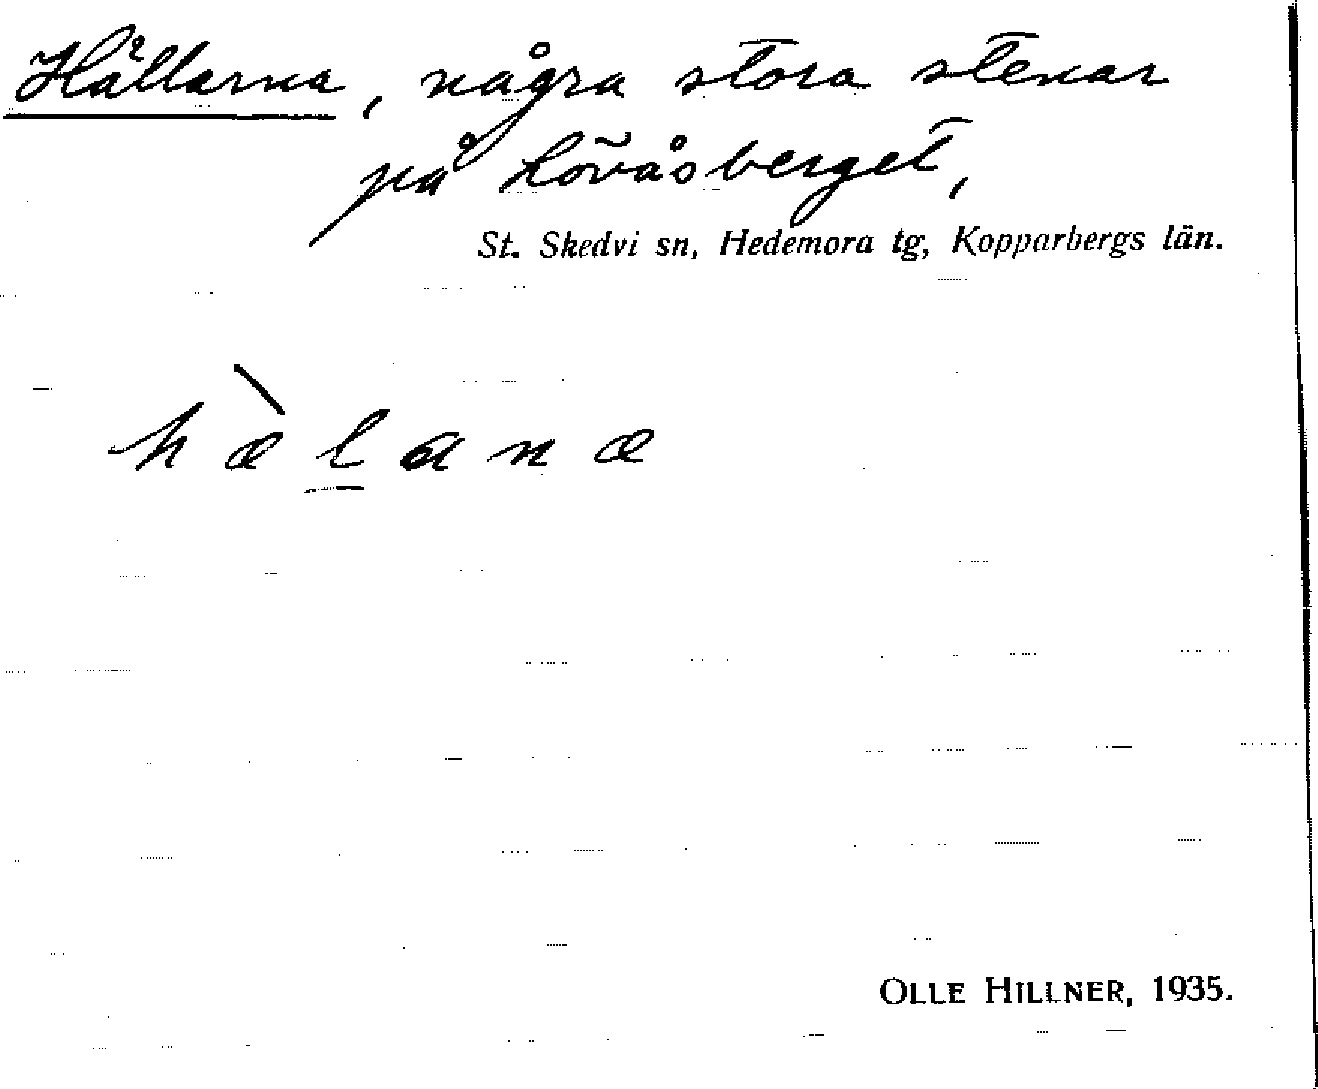 Hållarna, några stora stenar
på Lövåsberget,
St. Skedvi sn, Hedemora tg, Kopparbergs län.
hæ̀l̲anæ
OLLE HILLNER, 1935.